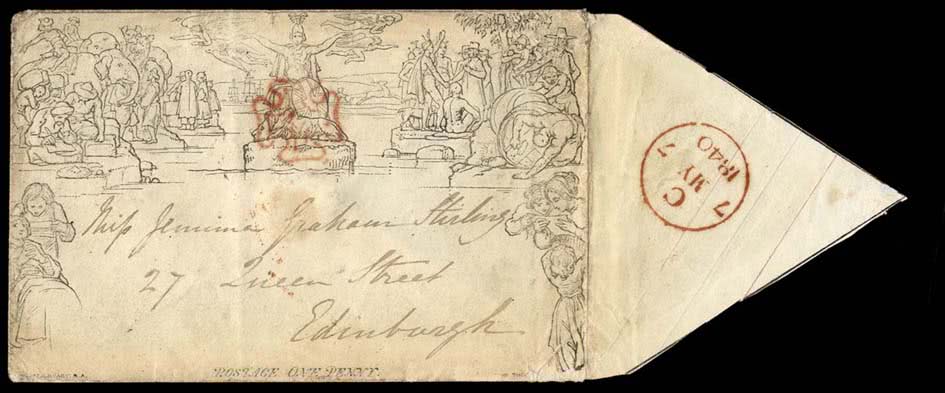 Miss Jemima Graham Stirling
27 Queen Street
Edinburgh
POSTAGE ONE PENNY.
C
7 MY 7
1840